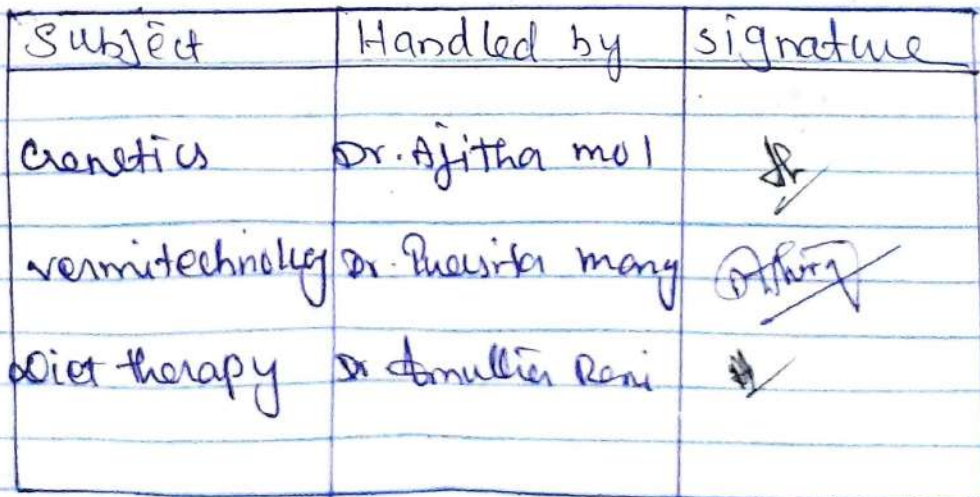 Subject Handled by signature
Genetics Dr. Ajitha mol
vermitechnology Dr. mary
Diet therapy Dr Rani